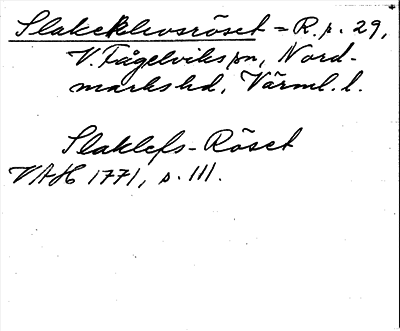 Slakeklevsröset = R.p. 29,
V. Fågelviks sn, Nord-
marks hd, Värml. l.
Slaklefs-Röset
VAH 1771, s. 111.